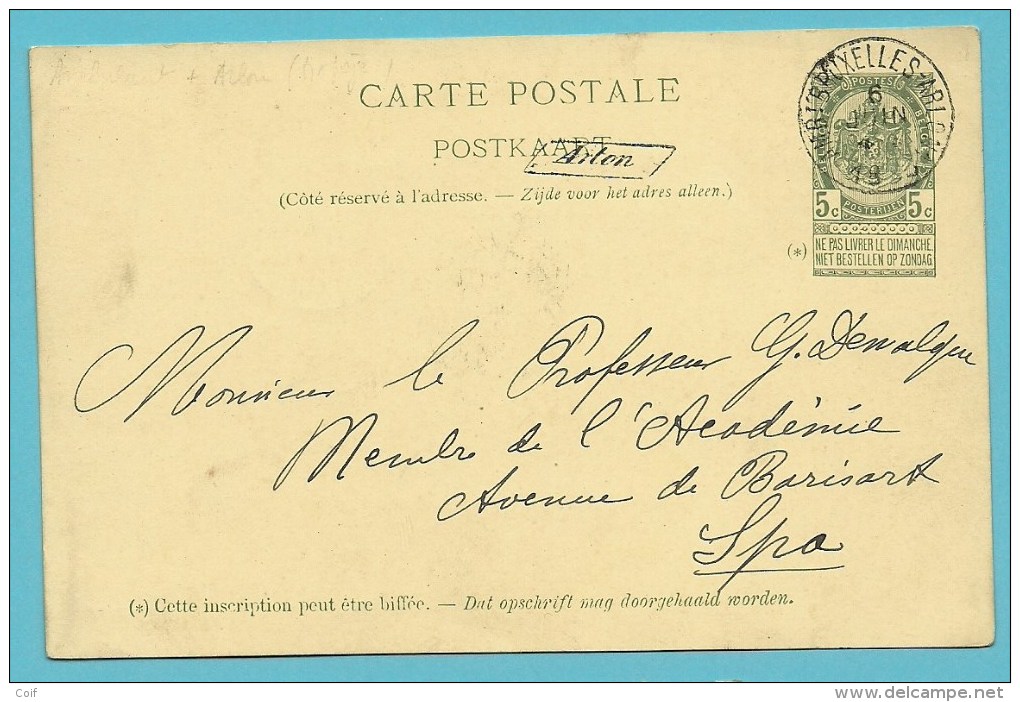 Arlon
CARTE POSTALE
POSTKAART
Arlon
(Côté réservé à l'adresse. — Zijde voor het adres alleen.)
BRUXELLES-ARLON
6
JUIN
POSTES
BELGIQUE
POSTERIJEN
5c 5c
(*) NE PAS LIVRER LE DIMANCHE.
NIET BESTELLEN OP ZONDAG.
Monsieur le Professeur G. Dewalque
Membre de l'Académie
Avenue de Barisart
Spa
(*) Cette inscription peut être biffée. — Dat opschrift mag doorgehaald worden.
Coif
delcampe.net